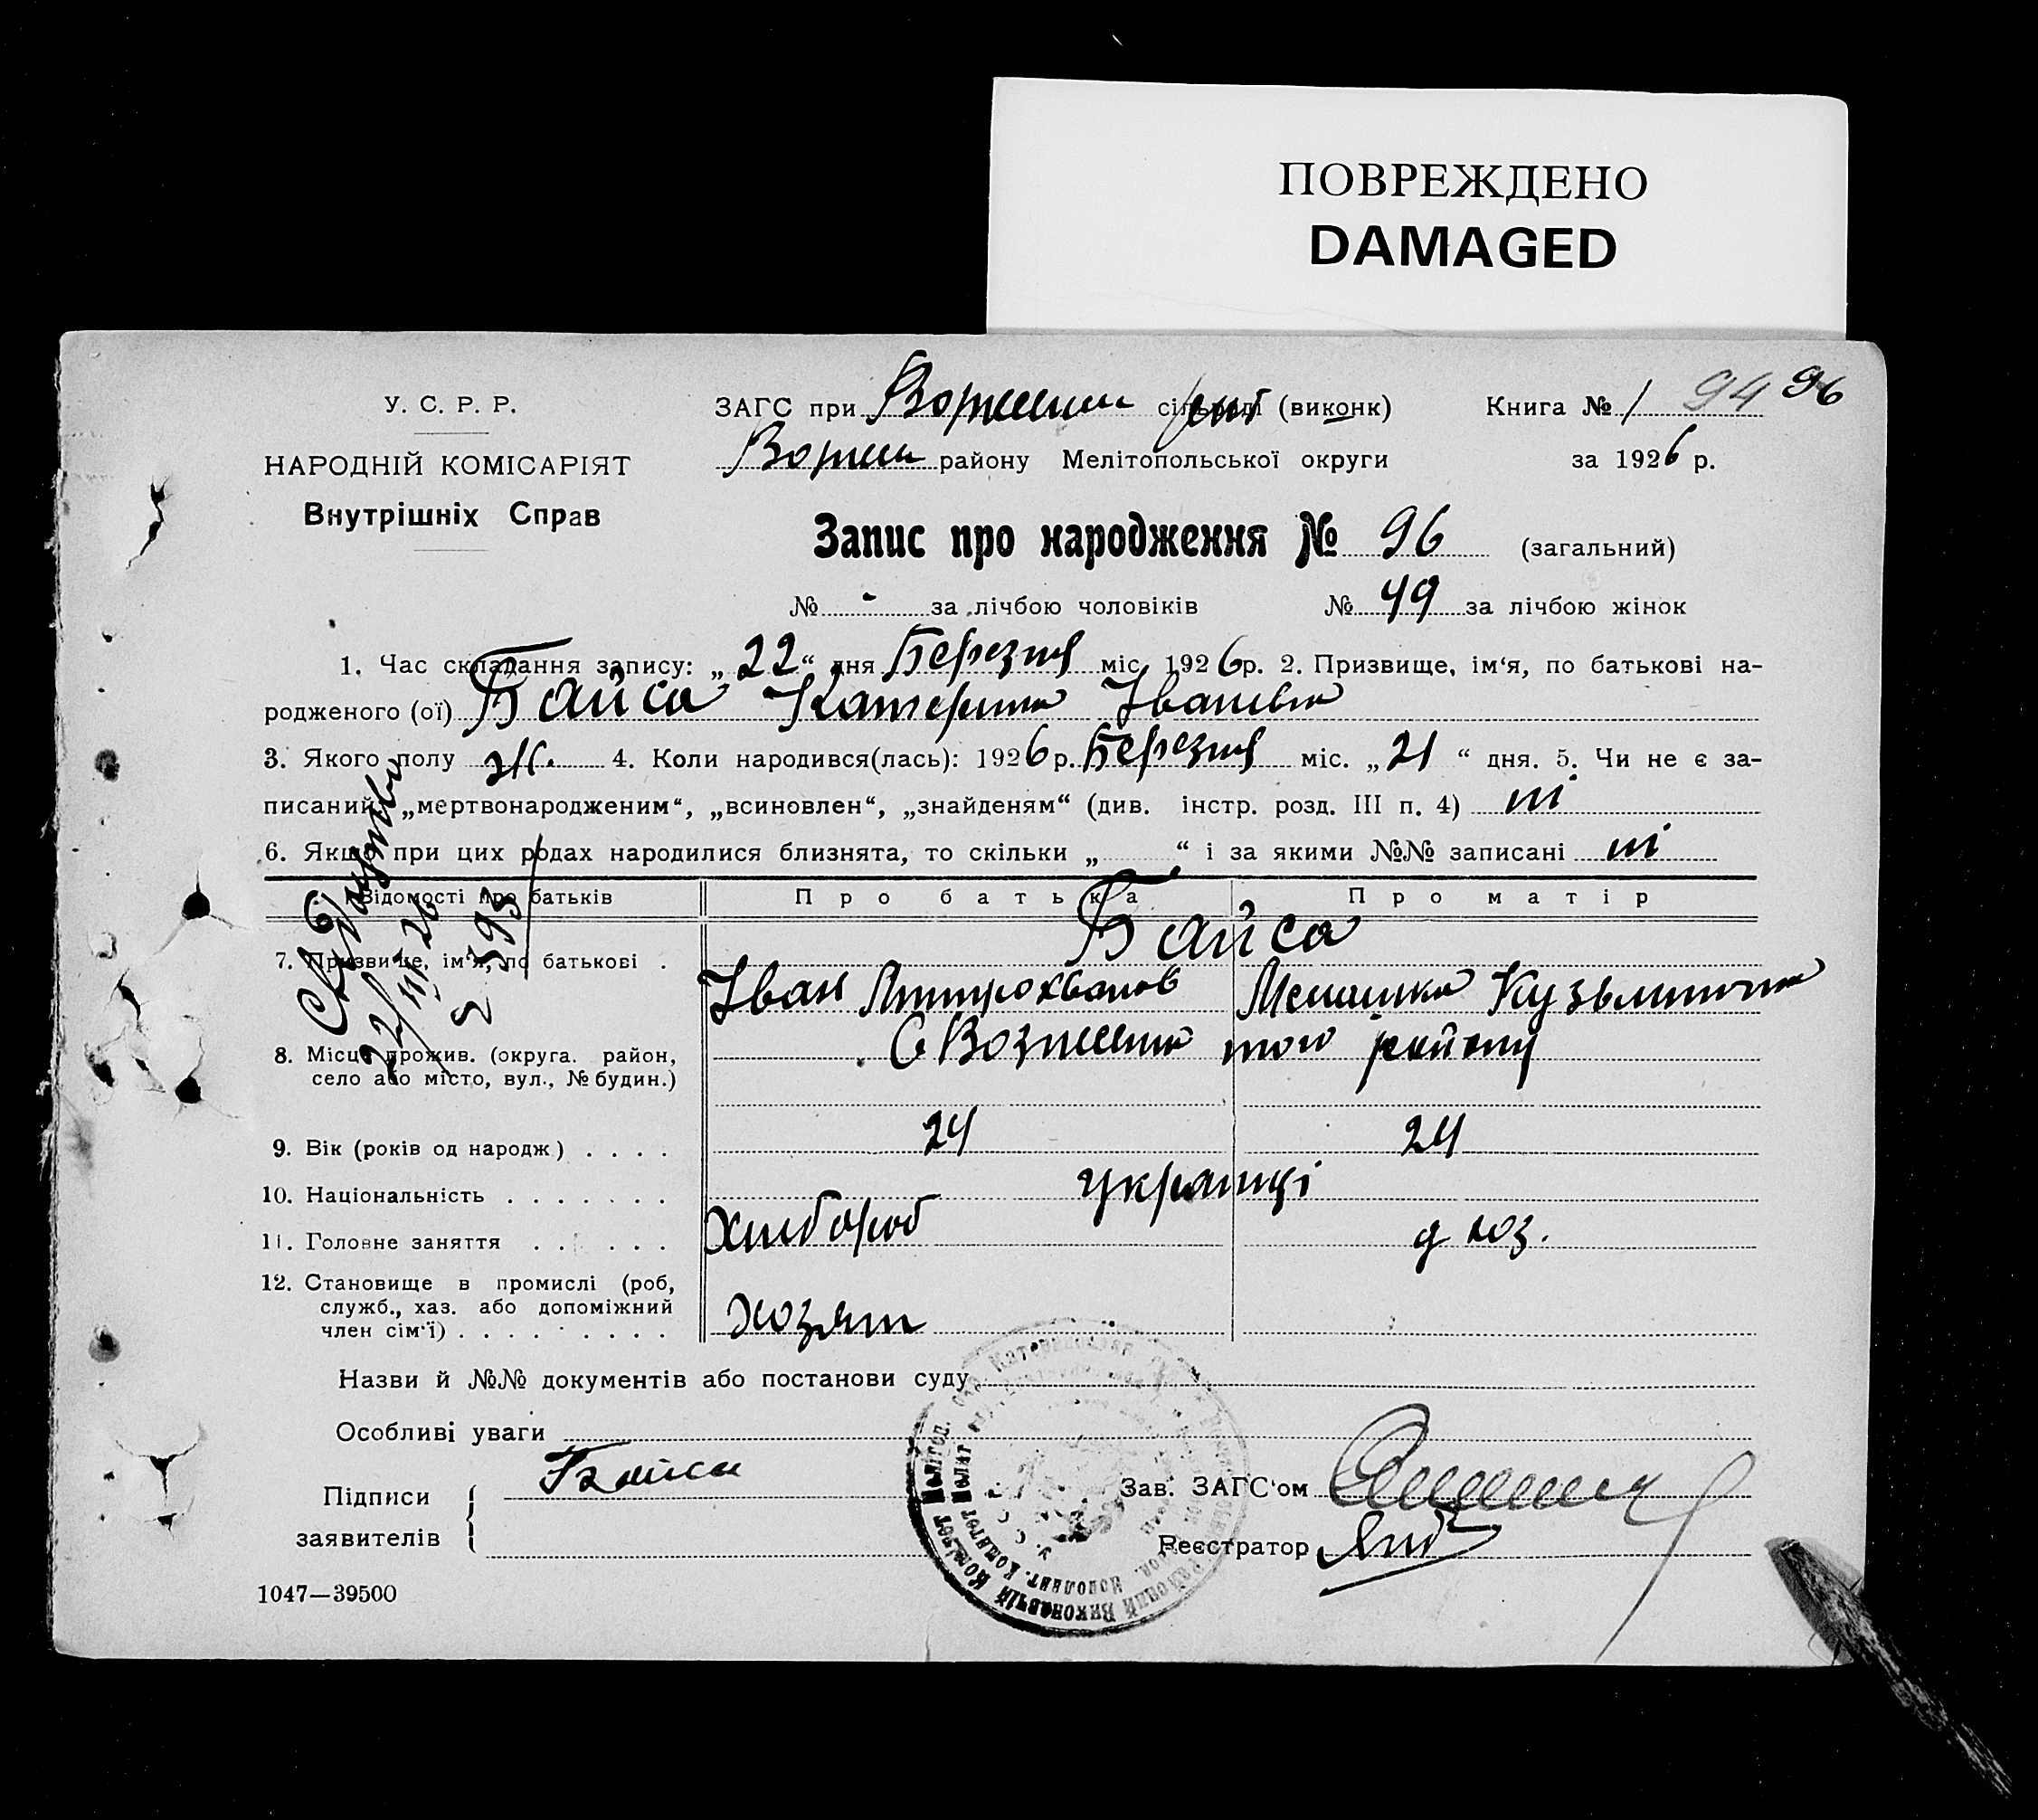 ПОВРЕЖДЕНО
DAMAGED
У. С. Р. Р.
НАРОДНІЙ КОМІСАРІЯТ
Внутрішніх Справ
ЗАГС при сільраді (виконк) Книга № 1 94 96
району Мелітопольської округи за 1926 р.
Запис про народження № 96 (загальний)
№ - за лічбою чоловіків № 49 за лічбою жінок
1. Час складання запису: „ 22 “ дня Березня міс. 1926 р. 2. Призвище, ім‘я, по батькові на-
родженого (ої) Байса Катерина Іванівна
3. Якого полу ж. 4. Коли народився(лась): 1926 р. Березня міс. „ 21 “ дня. 5. Чи не є за-
писаний „мертвонародженим“, „всиновлен“, „знайденям“ (див. інстр. розд. III п. 4) ні
6. Якщо при цих родах народилися близнята, то скільки „ “ і за якими №№ записані ні
Відомості про батьків Про батька Про матір
Байса
7. Призвище, ім‘я, по батькові . Іван Митрохванов Кузьминична
8. Місце прожив. (округа. район, С Вознесенка того району
село або місто, вул., № будин.)
9. Вік (років од народж) . . . . 24 24
10. Національність . . . . . . . українці
11. Головне заняття . . . . . . Хлібороб д хоз.
12. Становище в промислі (роб,
служб., хаз. або допоміжний
член сім‘ї) . . . . . . . . . хозяїн
Назви й №№ документів або постанови суду
Особливі уваги
Підписи
заявителів
Байса
Зав. ЗАГС‘ом
Реєстратор
1047—39500